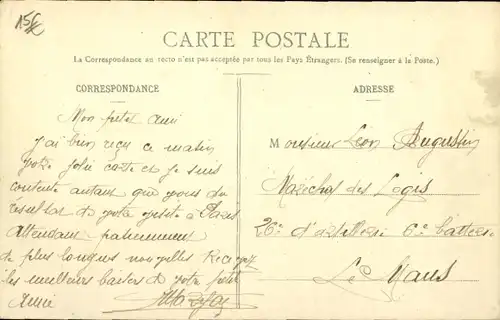 CARTE POSTALE
La Correspondance au recto n'est pas acceptée par tous les Pays Étrangers. (Se renseigner à la Poste.)
CORRESPONDANCE
Mon petit ami
J'ai bien reçu ce matin
votre jolie carte et je suis
contente autant que vous du
résultat de votre visite à Paris
Attendant patiemment
de plus longues nouvelles Recevez
les meilleurs baisers de votre petite
Amie
ADRESSE
Monsieur Léon Augustin
Maréchal des Logis
26e d'artillerie 6e batterie
Le Mans